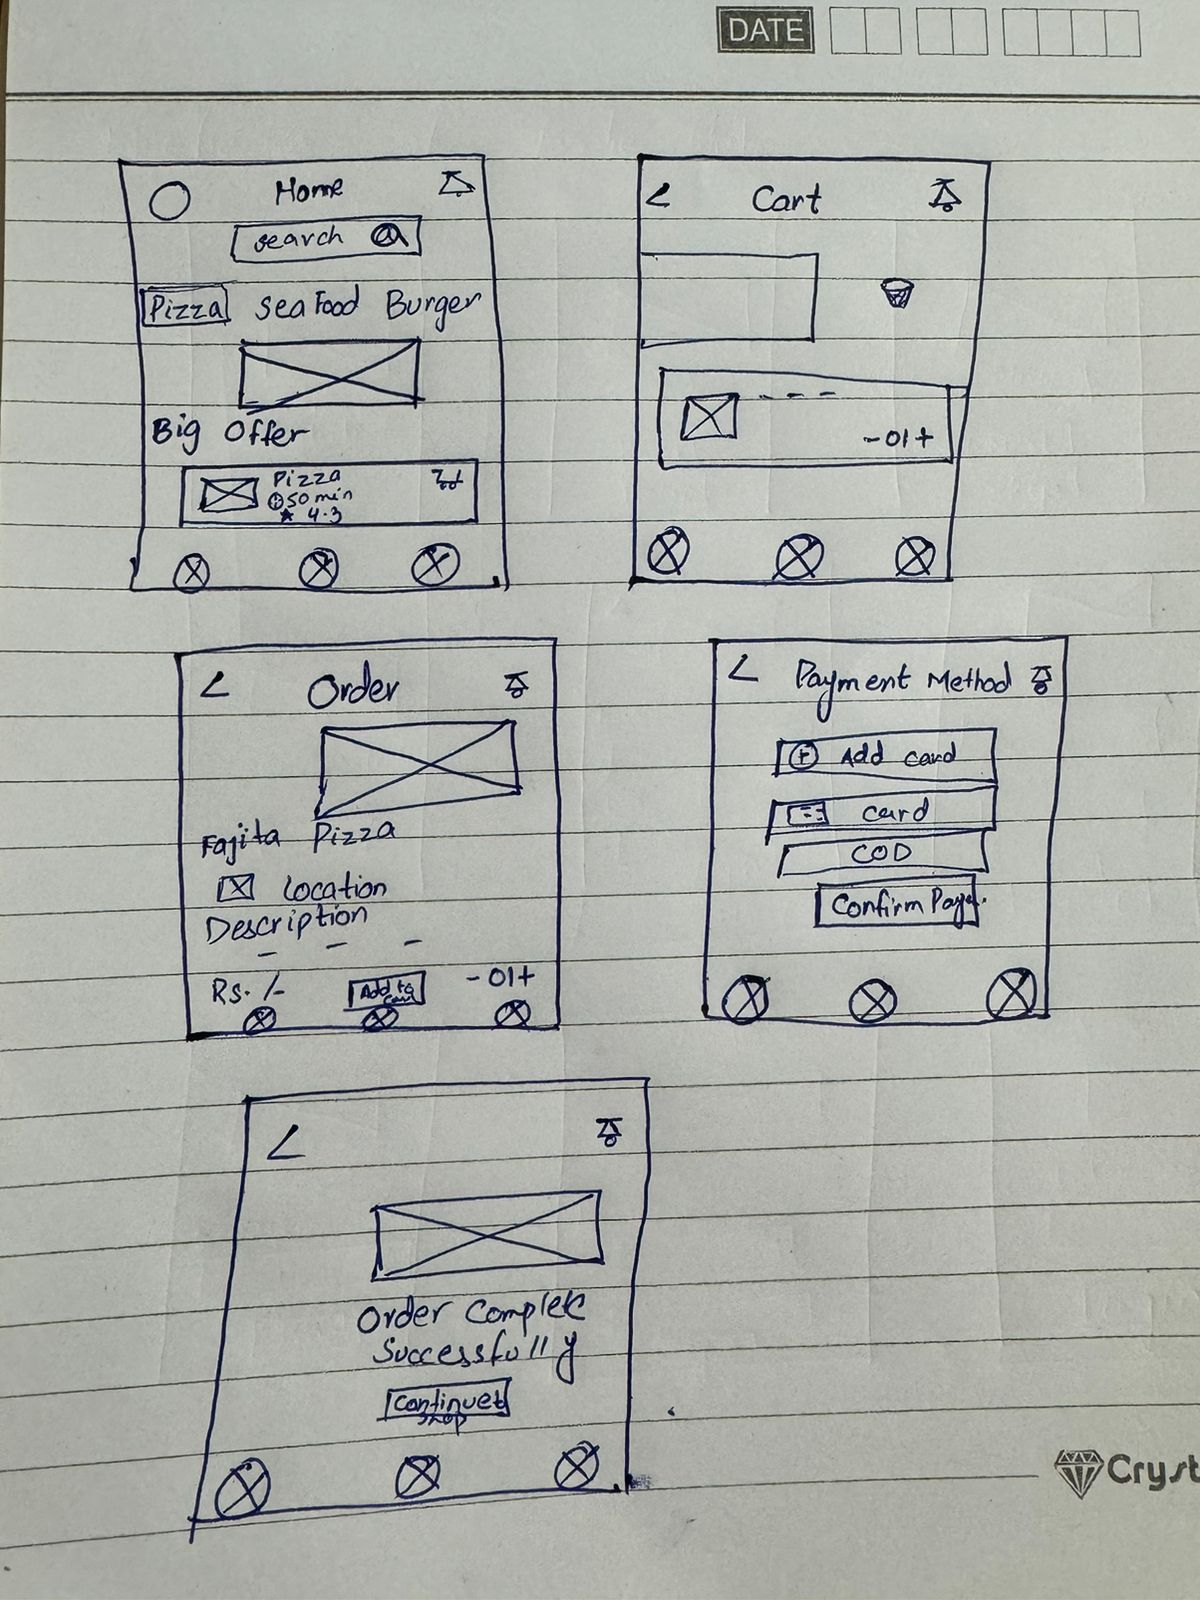 DATE
Home
search
Pizza Sea Food Burger
Big Offer
Pizza
50 min
4.3
Cart
- 01 +
Order
Fajita Pizza
Location
Description
Rs. /-
Add to
- 01 +
Payment Method
Add card
card
COD
Confirm
Order Complete
Successfully
shop
Cryst